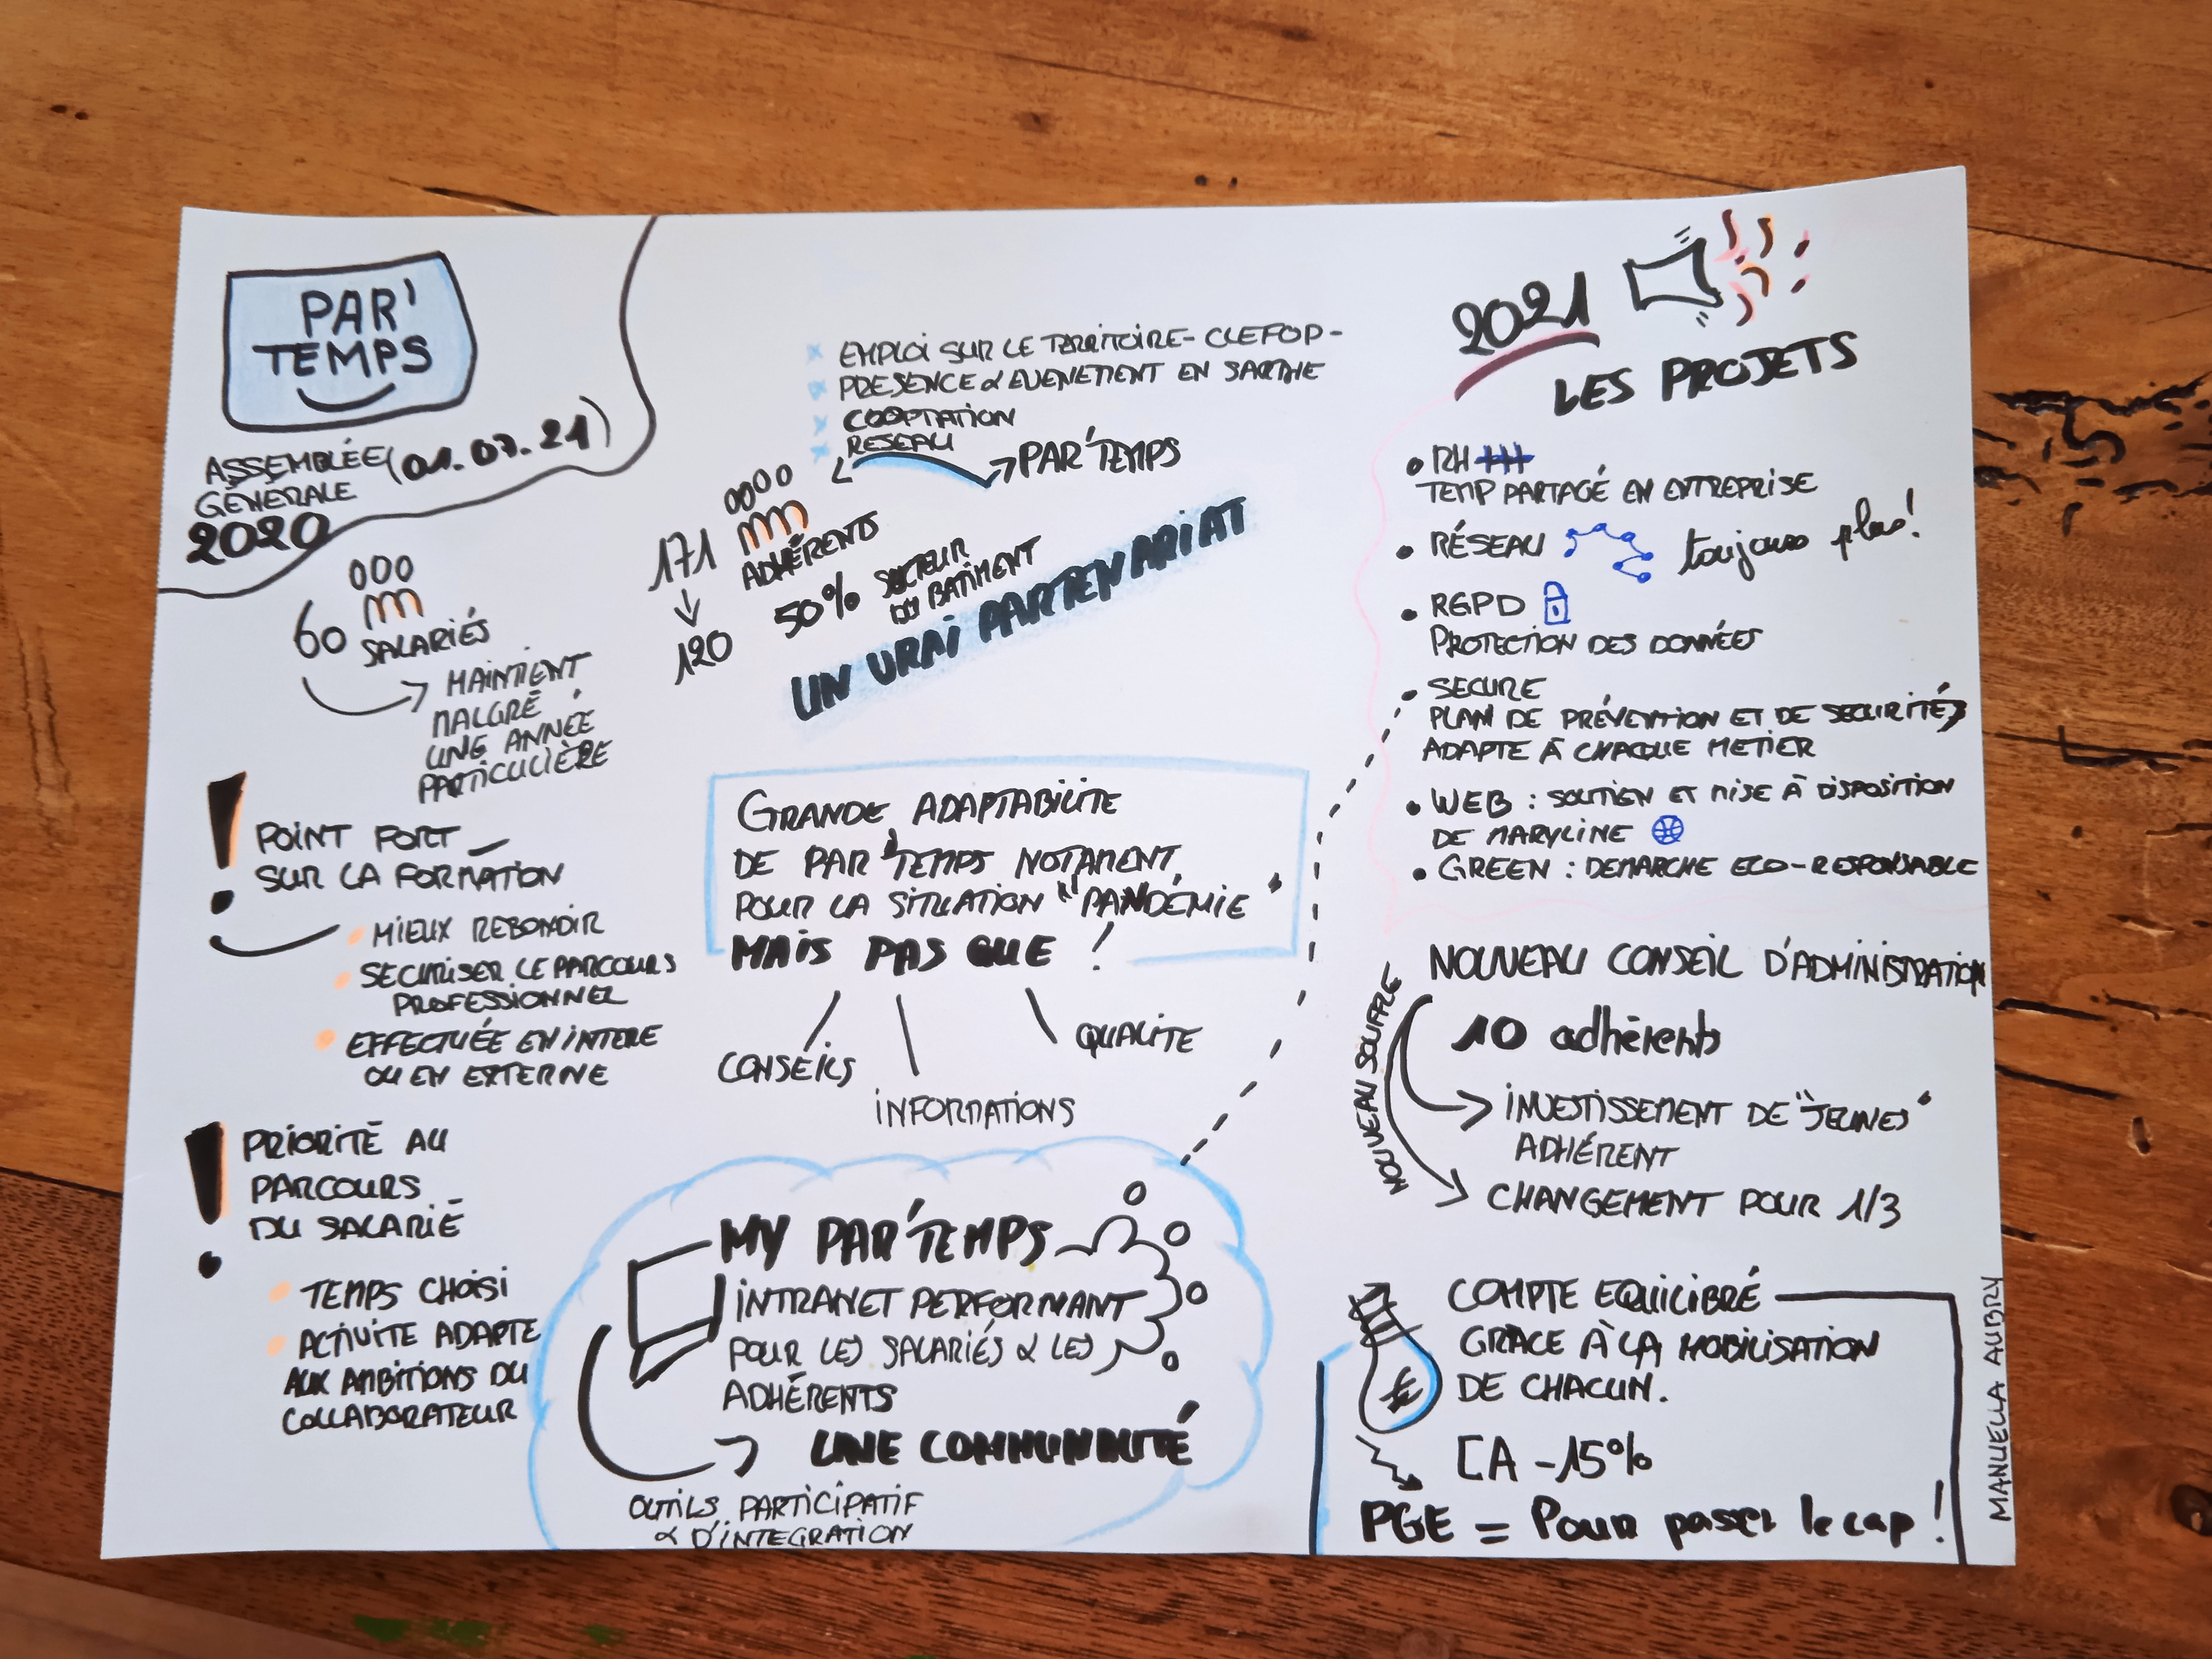 PAR'
TEMPS
ASSEMBLÉE (01.07.21)
GÉNÉRALE
2020
60 SALARIÉS
MAINTIENT
MALGRÉ
UNE ANNÉE
PARTICULIÈRE
! POINT FORT
SUR LA FORMATION
MIEUX REBONDIR
SECURISER LE PARCOURS
PROFESSIONNEL
EFFECTUÉE EN INTERE
OU EN EXTERNE
! PRIORITÉ AU
PARCOURS
DU SALARIÉ
TEMPS CHOISI
ACTIVITE ADAPTE
AUX AMBITIONS DU
COLLABORATEUR
x EMPLOI SUR LE TERRITOIRE - CLEFOP -
x PRESENCE & EVENEMENT EN SARTHE
x COOPTATION
x RESEAU
PAR'TEMPS
171 ADHÉRENTS
120
50% SECTEUR
BATIMENT
UN VRAI PARTENARIAT
GRANDE ADAPTABILITE
DE PAR'TEMPS NOTAMENT
POUR LA SITUATION "PANDÉMIE"
MAIS PAS QUE !
CONSEILS
INFORMATIONS
QUALITE
MY PAR'TEMPS
INTRANET PERFORMANT
POUR LES SALARIÉS & LES
ADHÉRENTS
UNE COMMUNAUTÉ
OUTILS PARTICIPATIF
& D'INTEGRATION
2021
LES PROJETS
• RH
TEMP PARTAGÉ EN ENTREPRISE
• RÉSEAU toujours plus!
• RGPD
PROTECTION DES DONNÉES
• SECURE
PLAN DE PRÉVENTION ET DE SECURITÉS
ADAPTE À CHAQUE METIER
• WEB : SOUTIEN ET MISE À DISPOSITION
DE MARYLINE
• GREEN : DEMARCHE ECO-RESPONSABLE
NOUVEAU CONSEIL D'ADMINISTRATION
NOUVEAU SOUFFLE
10 adhérents
INVESTISSEMENT DE "JEUNES"
ADHÉRENT
CHANGEMENT POUR 1/3
COMPTE EQUILIBRÉ
GRACE À LA MOBILISATION
DE CHACUN.
€
CA -15%
PGE = Pour passer le cap !
MANUELLA AUBRY